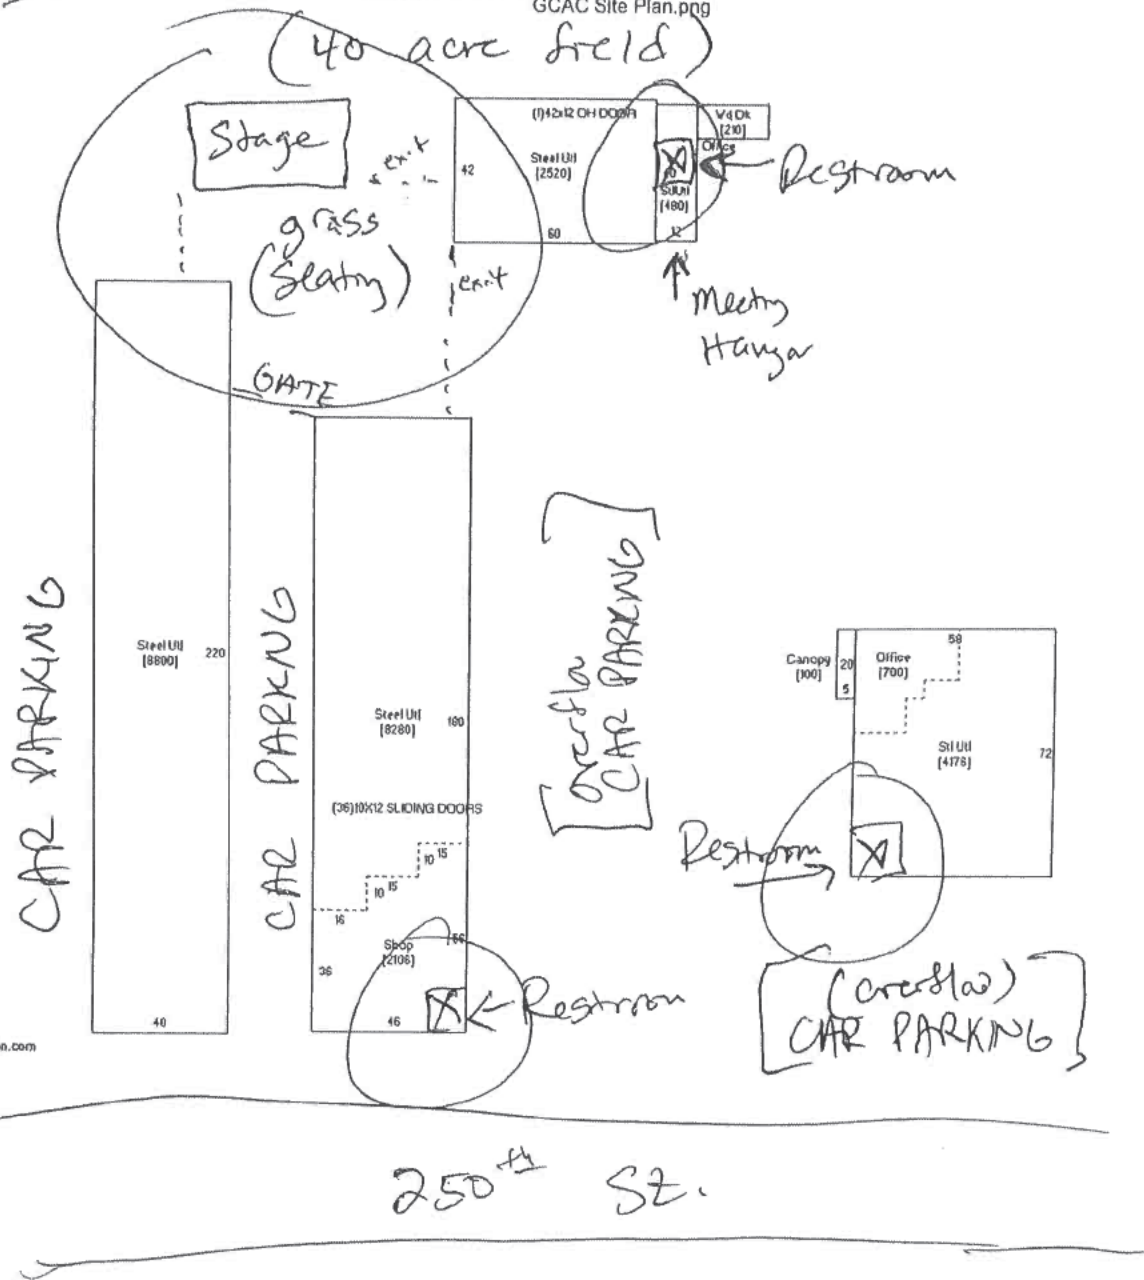 GCAC Site Plan.png
(40 acre field)
Stage
exit
grass
(Seating)
exit
GATE
(1)42x12 OH DOOR
Steel Utl
[2520]
42
60
Wd Dk
[210]
Office
40
Stl Utl
[480]
12
Restroom
Meeting
Hangar
CAR PARKING
Steel Utl
[8800]
220
40
CAR PARKNG
Steel Utl
[8280]
180
(36)10X12 SLIDING DOORS
10 15
10 15
16
Shop
[2106]
56
36
46
Restroom
[overflo
CAR PARKNG]
Canopy
[100]
20
5
Office
[700]
58
Stl Utl
[4176]
72
Restroom
[(overflow)
CAR PARKING]
n.com
250th St.